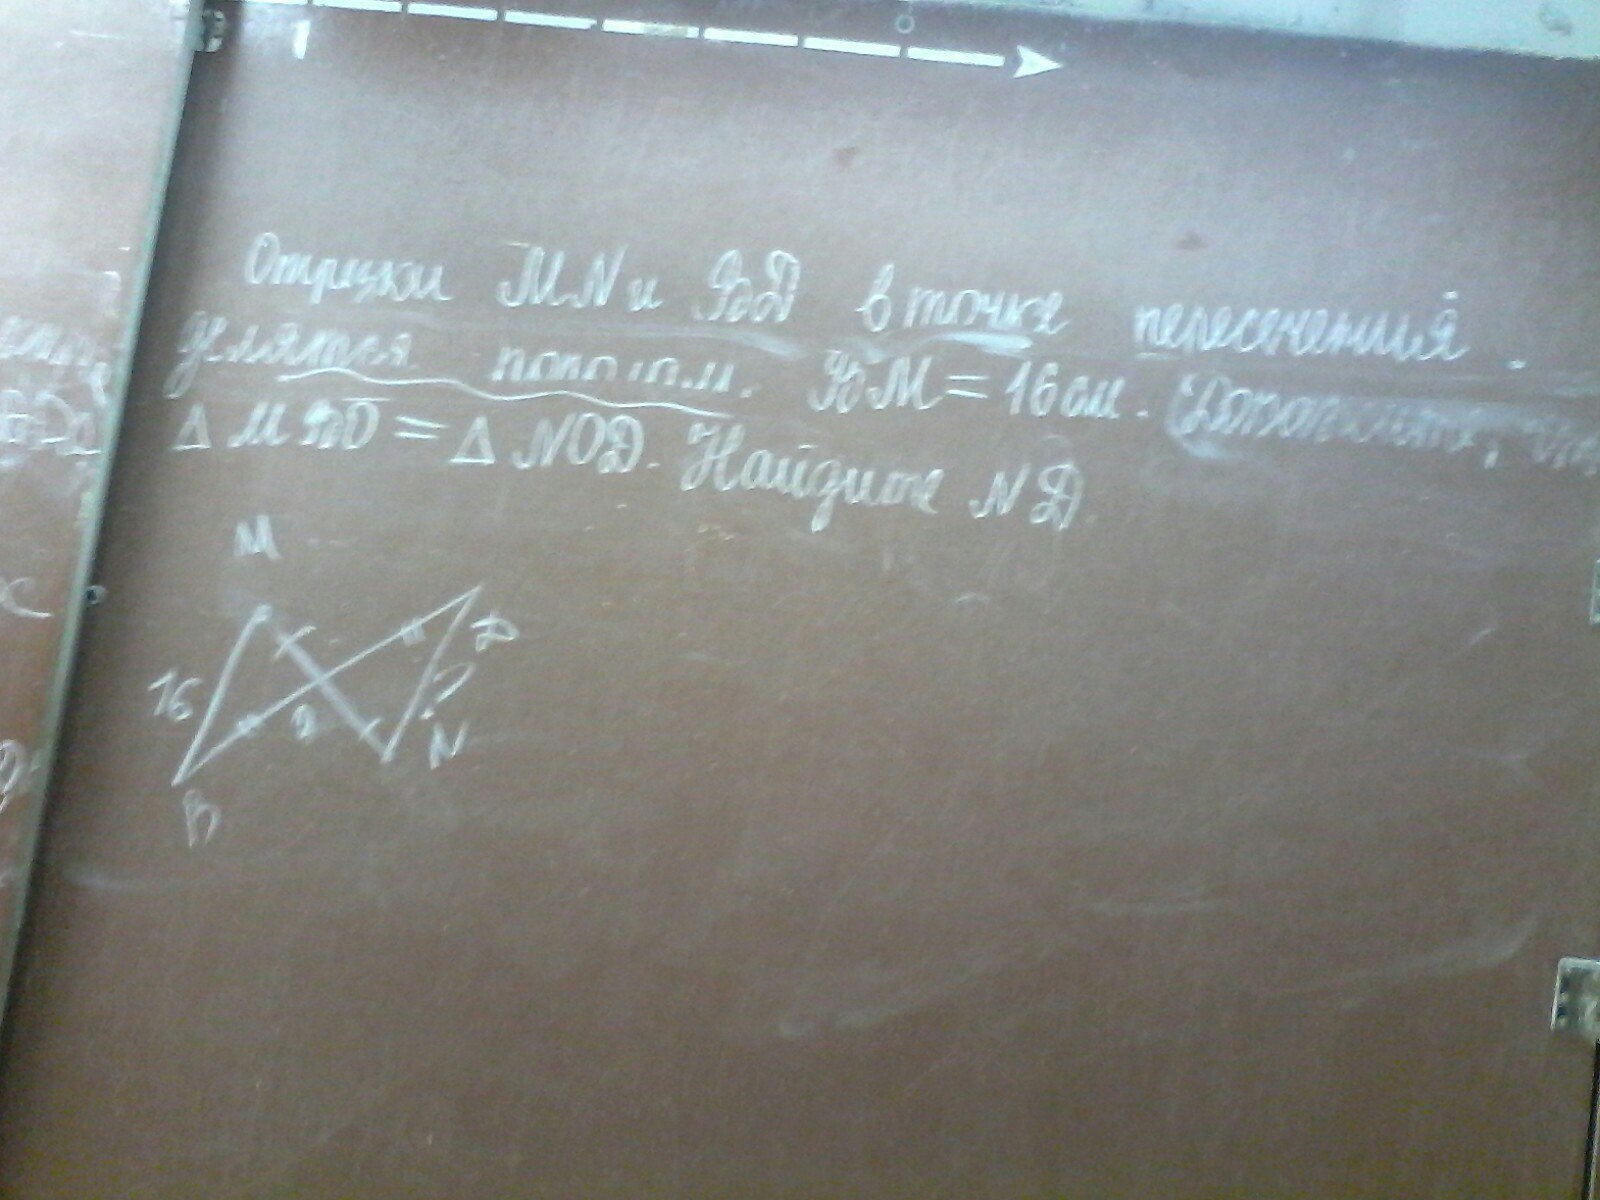 Отрезки MN и BD в точке пересечения
делятся пополам. BM = 16 см. Докажите, что
Δ MBO = Δ NOD. Найдите ND.
M
D
16
?
N
B